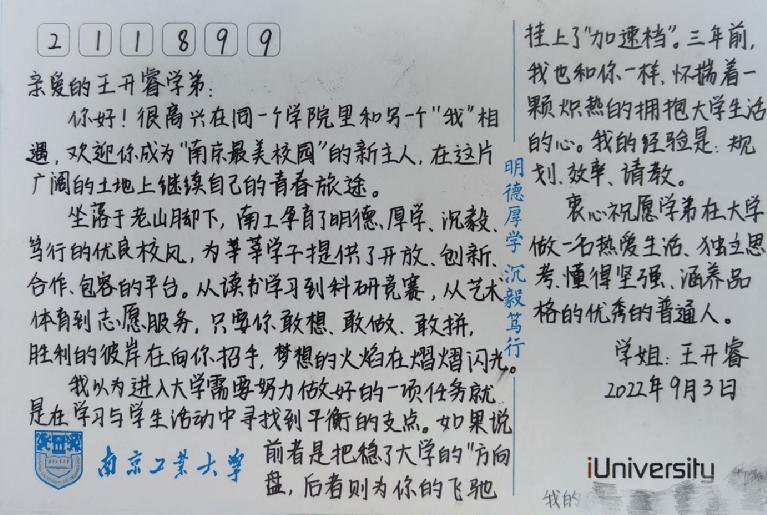 211899
亲爱的王开睿学弟:
你好!很高兴在同一个学院里和另一个"我"相
遇,欢迎你成为"南京最美校园"的新主人,在这片
广阔的土地上继续自己的青春旅途。
坐落于老山脚下,南工孕育了明德、厚学、沉毅、
笃行的优良校风,为莘莘学子提供了开放、创新、
合作、包容的平台。从读书学习到科研竞赛,从艺术
体育到志愿服务,只要你敢想、敢做、敢拼,
胜利的彼岸在向你招手,梦想的火焰在熠熠闪光。
我以为进入大学需要努力做好的一项任务就
是在学习与学生活动中寻找到平衡的支点。如果说
前者是把稳了大学的"方向
盘,后者则为你的飞驰
南京工业大学
明德厚学 沉毅笃行
挂上了"加速档"。三年前,
我也和你一样,怀揣着一
颗炽热的拥抱大学生活
的心。我的经验是:规
划、效率、请教。
衷心祝愿学弟在大学
做一名热爱生活、独立思
考、懂得坚强、涵养品
格的优秀的普通人。
学姐:王开睿
2022年9月3日
iUniversity
我的